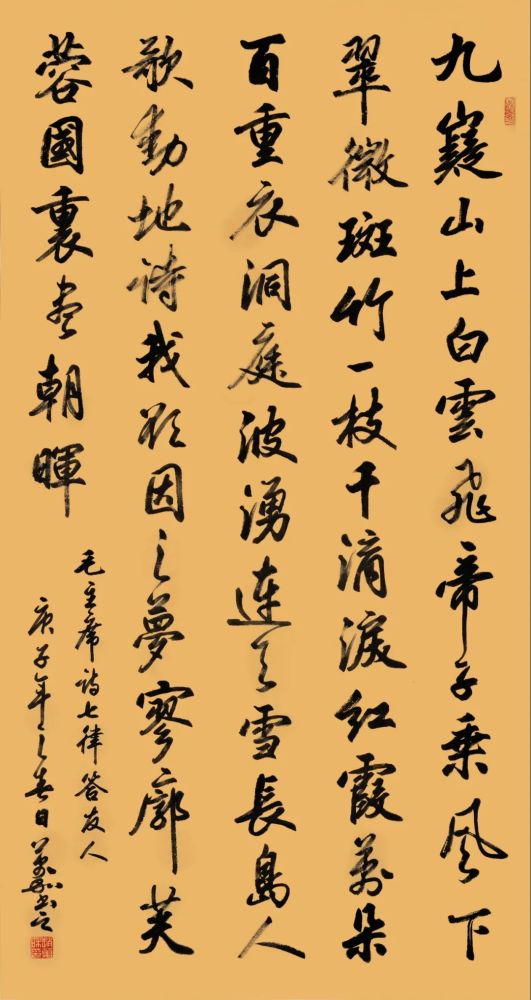 九嶷山上白雲飛帝子乗風下
翠微斑竹一枝千滴淚紅霞萬朵
百重衣洞庭波湧連天雪長島人
歌動地詩我欲因之夢寥廓芙
蓉國裏盡朝暉
毛主席诗七律答友人
庚子年之春日